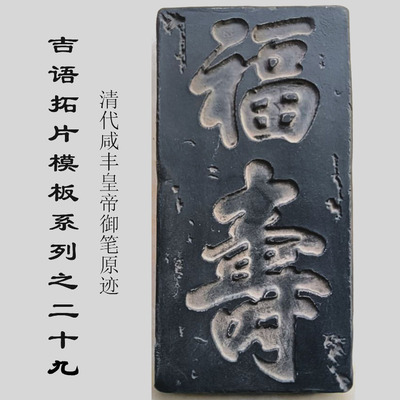 吉语拓片模板系列之二十九
清代咸丰皇帝御笔原迹
福寿